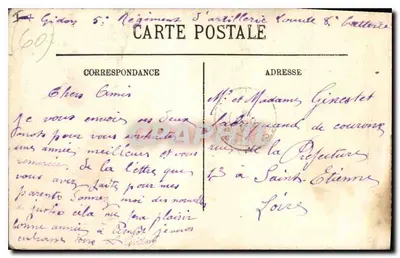 Gidon 5e Régiment d'artillerie Lourde 8e Batterie
(60)
CARTE POSTALE
CORRESPONDANCE
ADRESSE
Chers Amis
Je vous envoi ces deux
mots pour vous souhaiter
une année meilleur et vous
remercier de la lettre que
vous avez faite pour mes
parents donnez moi des nouvelles
cela me fera plaisir
bonne année à
Mr et Madame Gincolet
fabriquand de couronne
rue de la Préfecture
43 a Saint-Etienne
Loire